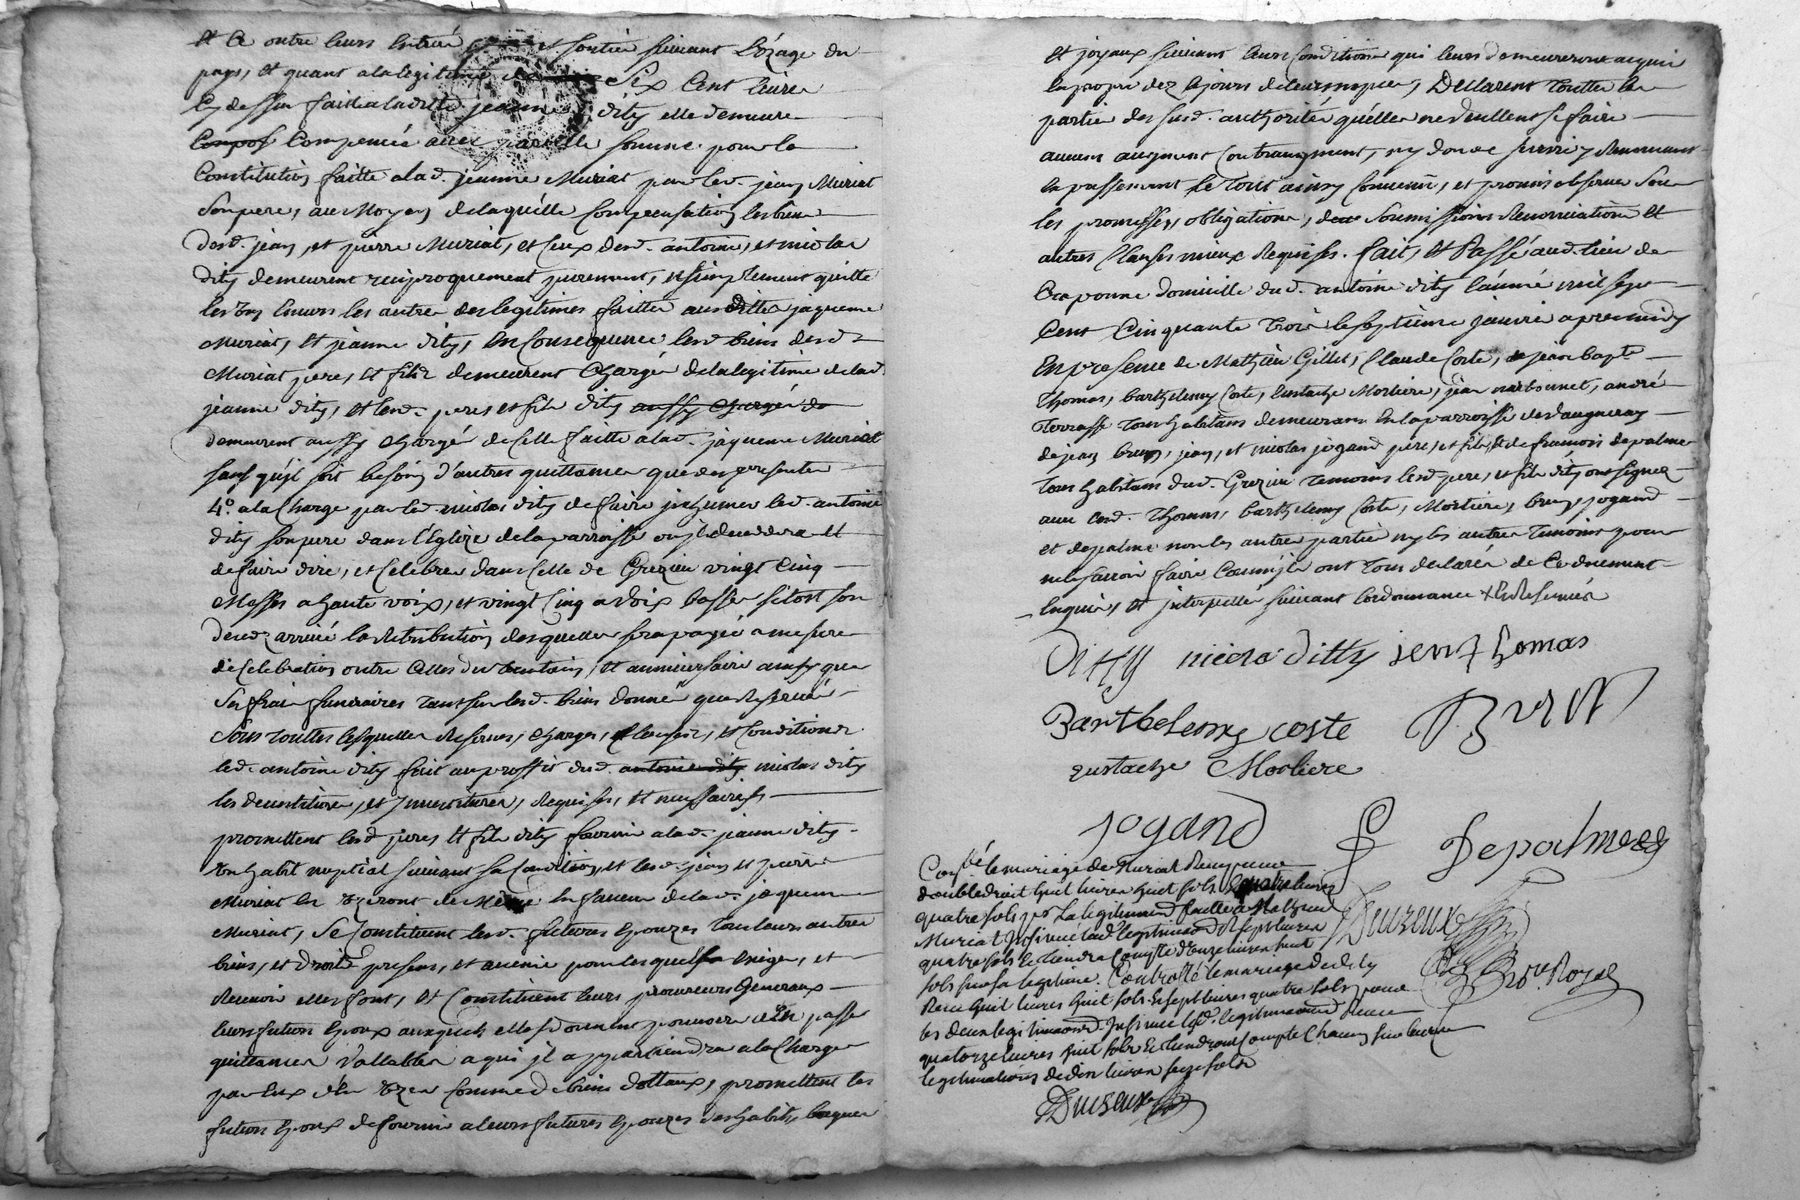 et ce outre leurs entrée et sortie suivant l'ézage du
pays, et quant a la legitime de Six Cent livres
Cy dessus faitte a laditte jeanne dity elle demeure
Compos Compensée avec pareille somme pour la
Constitution faitte a lad. jeanne Muriat par led. jean Muriat
son pere, au Moyen delaquelle Compensation les biens
desd. jean, et pierre Muriat, et ceux desd. antoine, et nicolas
dity demeurent reciproquement purement, et simplement quitte
les uns envers les autres des legitimes faittes ausdittes jaqueme
Muriat, et jeanne dity, en Consequence lesd. biens desd.
Muriat pere, et fils demeurent Chargé delalegitime delad.
jeanne dity, et lesd. peres et fils dity aussy chargés de
demeurent aussy chargé de Celle faitte alad. jaqueme Muriat
sans qu'il soit besoin d'autres quittances que des presentes
4° a la Charge par led. nicolas dity de faire inhumer led. antoine
dity son pere dans l'Eglize delaparroisse ou il decedera et
de faire dire, et Celebrer dans Celle de Grezieu vingt Cinq
Messes a haute voix, et vingt Cinq a voix basse sitost son
decez arrivé la retribution desquelles sera payée a mesure
de Celebration outre Celles du bout de l'an, et anniversaire ainsy que
ses frais funeraires tant sur lesd. biens donné que Reservé
Sous touttes lesquelles Reserves, charges, Clauses, et Conditions
led. antoine dity fait au proffit dud. antoine dity nicolas dity
les devestitures, et investitures, Requises, et necessaires
promettent lesd peres et fils dity fournir a lad. jeanne dity
un habit nuptial suivant sa Condition, et lesd jean et pierre
Muriat en uzeront de Même en faveur delad. jaqueme
Muriat, Se Constituent lesd. futures epouzes tous leurs autres
biens, et droits presens, et avenir pour lesquels exiger, et
Recevoir elles font, et Constituent leurs procureurs Generaux
leurs futurs epoux auxquels elles donnent pouvoir d'en passer
quittances vallables a qui il appartiendra a la Charge
par eux d'en uzer Comme de biens dottaux, promettent les
futurs epoux de fournir a leurs futures epouzes des habits, bagues
et joyaux suivant leurs Conditions qui leurs demeureront acquis
en propre dez le jour de leurs noces, Declarent touttes les
parties des susd. authorités qu'elles ne veullent se faire
aucun augment Contraugment, ny don de survie y Renonceant
en passement Le tout ainsy Convenu, et promis observer Sous
les promesses, obligations, Soumissions Renonciations et
autres Clauses mieux Requises. fait, et Passé aud. lieu de
Craponne domicille dud. antoine dity l'année mil sept
Cent Cinquante trois le septieme janvier apres midy
En presence de Mathieu Gillet, Claude Coste, jean bapte
Thomas, barthelemy Coste, Eustache Morliere, jean narbonnet, andré
Terrasse tous habitans demeurans en la parroisse de vaugneray
de jean brun, jean, et nicolas jogand pere, et fils, et de francois depalme
tous habitans dud. Grezieu temoins lesd. pere, et fils dity ont signez
avec lesd. Thomas, barthelemy Coste, Morliere, brun, jogand
et depalme non les autres parties ny les autres temoins pour
ne le scavoir faire Comm'ils ont tous declarés de Ce duement
Enquis, et interpellés suivant l'ordonnance
Ditty nicola ditty jean thomas
Barthelemy coste Brun
eustache Morliere
jogand Depalmees
Conlé le mariage de Muriat Reçu pour
double droit huit livres huit sols
quatre sols pr la legitimaond faitte a Mathieu
Muriat
quatre sols Et tiendra Compte d'onze livres huit
sols sur sa legitime. Controllé le mariage de dity
Reçu huit livres huit sols Et sept livres quatre sols pour
les deux legitimaons Insinué led. legitimaond Reçu
quatorze livres huit sols Et tiendront Compte Chacun sur leurs
legitimations de dix livres seize sols
Duvreux
Duvreux
no. Royal